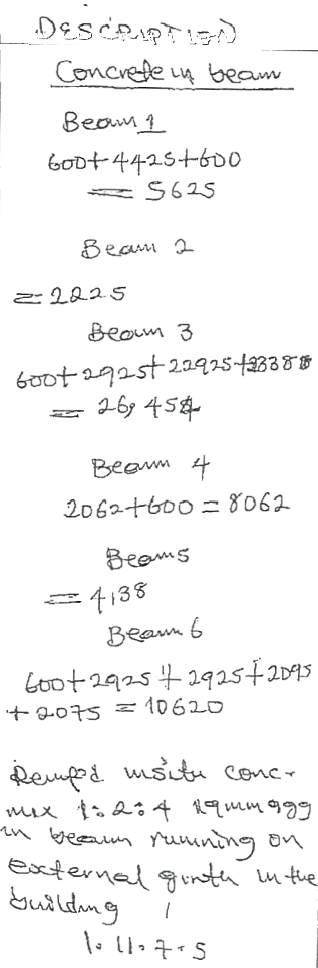 DESCRIPTION
Concrete in beam
Beam 1
600+4425+600
= 5625
Beam 2
= 2225
Beam 3
600+2925+22925+
= 26,454
Beam 4
2062+600 = 8062
Beam 5
= 4138
Beam 6
600+2925+2925+2095
+2075 = 10620
insitu conc.
mix 1:2:4 19mm agg
in beam running on
external girth in the
building
1.11.7.5